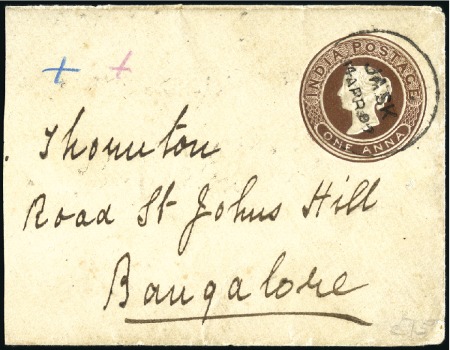 INDIA POSTAGE
JASK
4 APR 97
ONE ANNA
Thornton
Road St Johns Hill
Bangalore